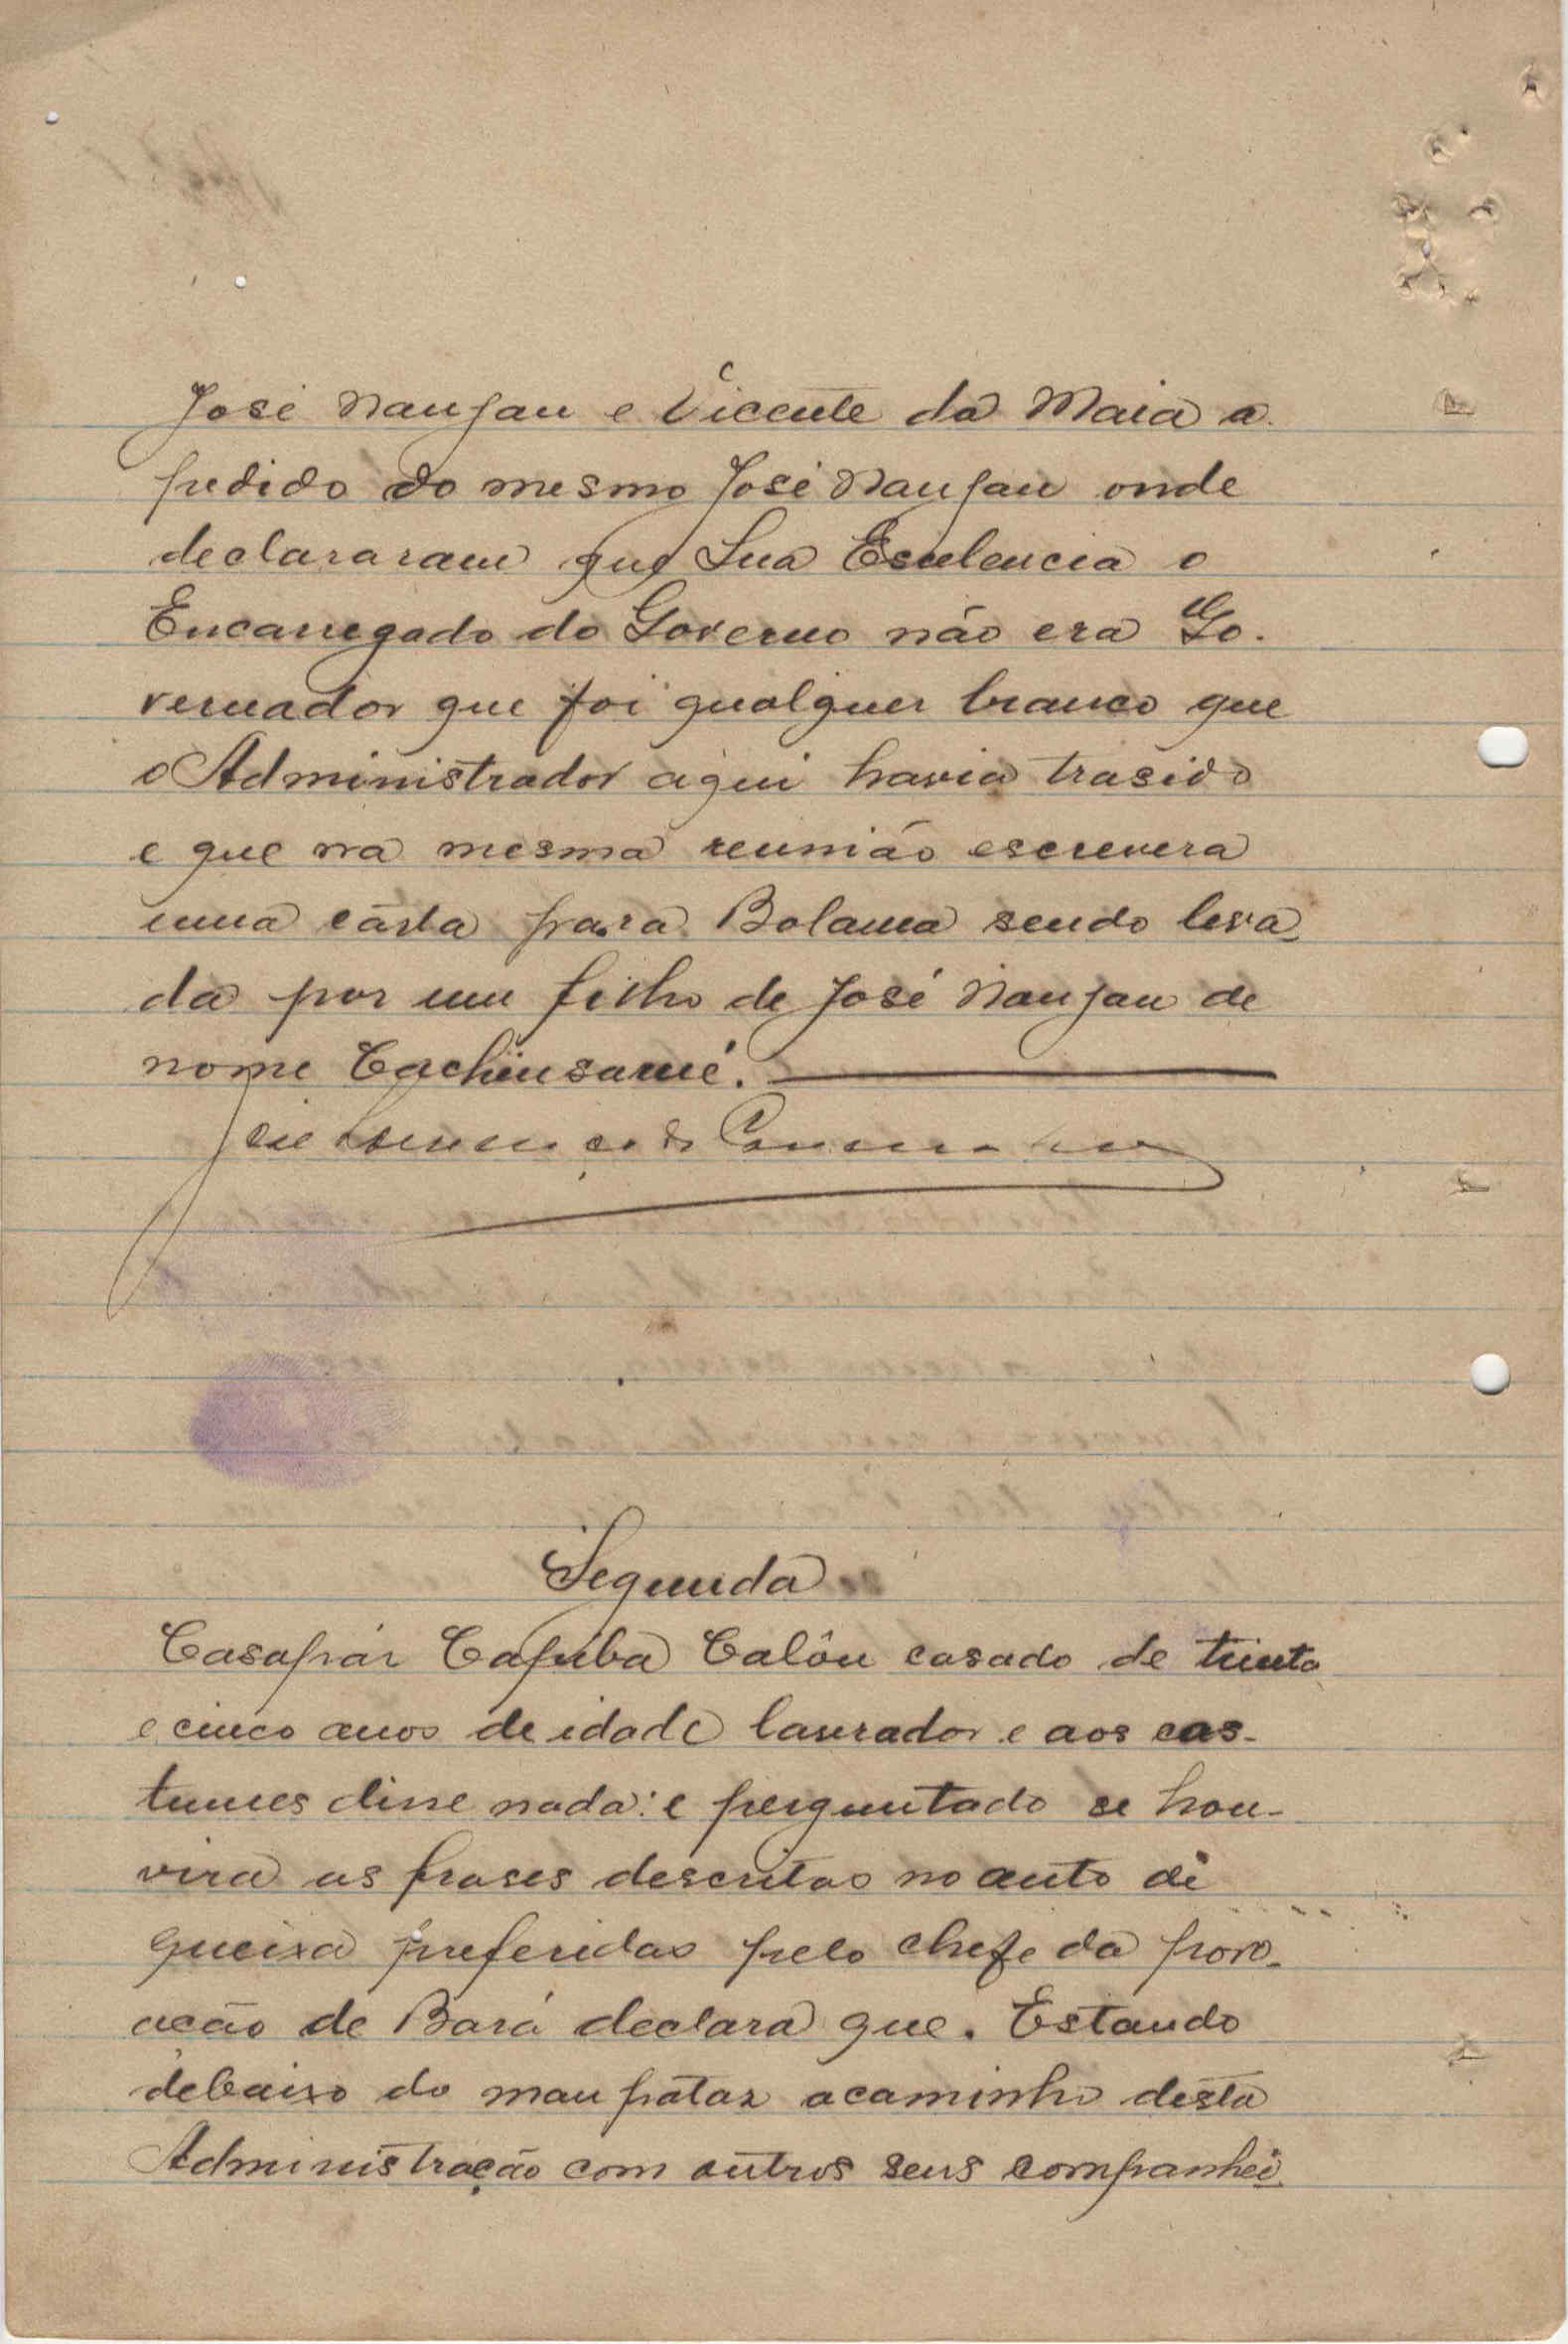 José Nanjau e Vicente da Maia a
pedido do mesmo José Nanjau onde
declararam que Sua Eselencia o
Encarregado do Governo não era Go.
vernador que foi qualquer branco que
o Administrador aqui havia trasido
e que na mesma reunião escrevera
uma cárta para Bolama sendo leva
da por um filho de José Nanjau de
nome
de
Segunda
Calôn casado de trinta
e cinco anos de idade lavrador e aos cos-
tumes disse nada: e perguntado se hou-
vira as frases descritas no auto de
queixa preferidas pelo chefe da povo-
ação de Bará declara que. Estando
debaixo do mau patar acaminho desta
Administração com outros seus companhei